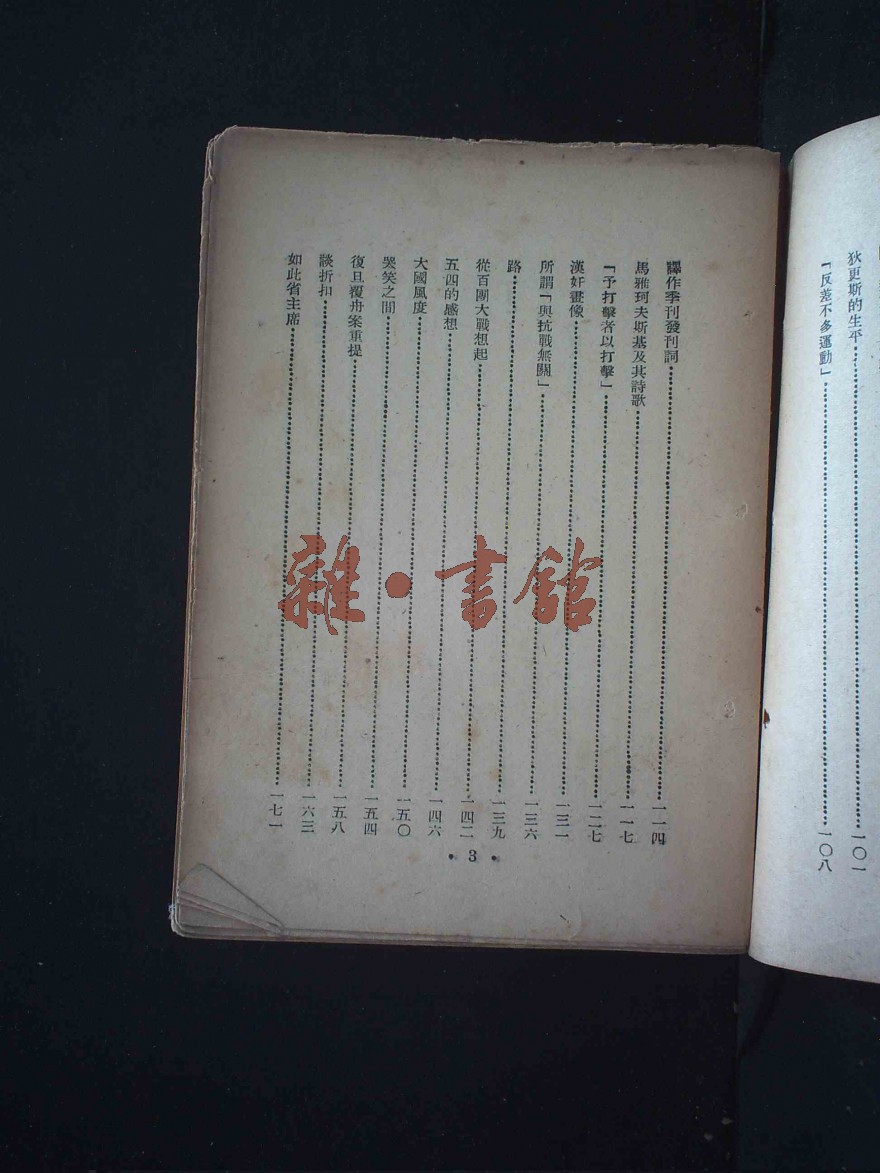 狄更斯的生平一〇一
「反差不多運動」一〇八
譯作季刊發刊詞一一四
馬雅珂夫斯基及其詩歌一一七
「予打擊者以打擊」一二七
漢奸畫像一三一
所謂「與抗戰無關」一三六
路一三九
從百團大戰想起一四二
五四的感想一四六
大國風度一五〇
哭笑之間一五四
復旦覆舟案重提一五八
談折扣一六三
如此省主席一七一
• 3 •
雜·書館